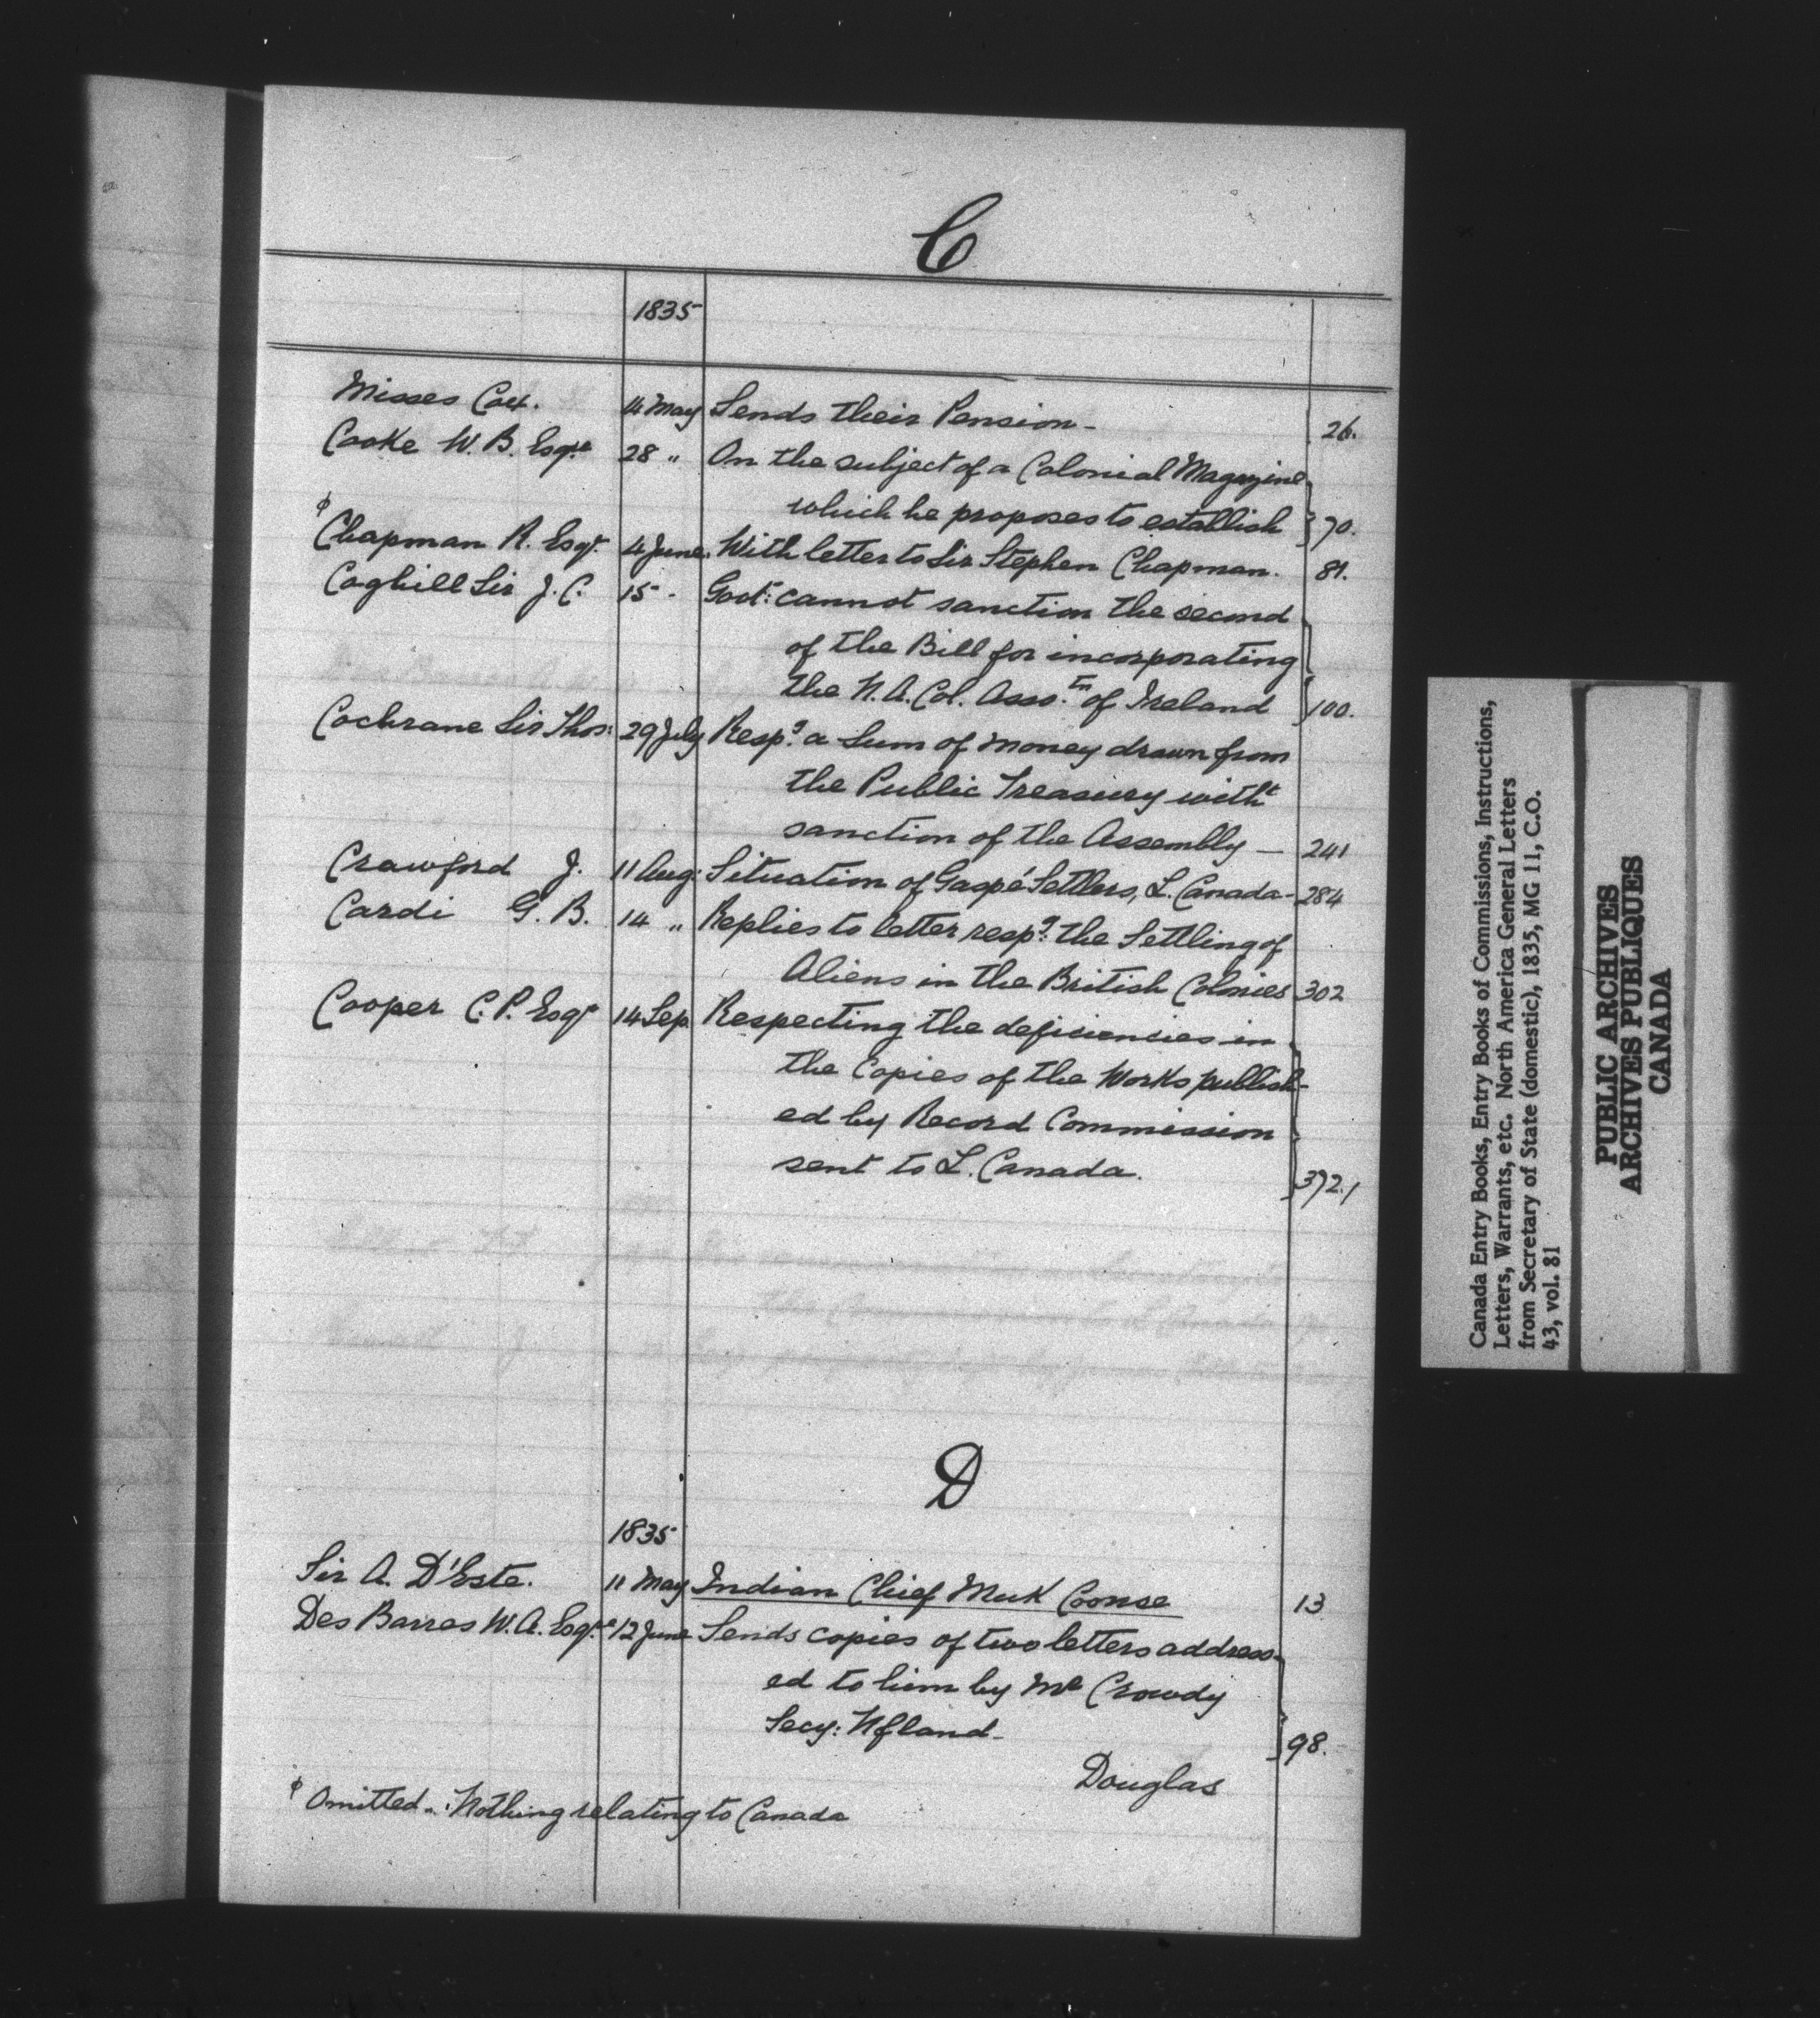 C
1835
Misses Cox. 14 May Sends their Pension - 26.
Cooke W. B. Esqre 28 " On the subject of a Colonial Magazine
which he proposes to establish 70.
φ Chapman R. Esqr. 4 June. With letter to Sir Stephen Chapman. 81.
Coghill Sir J. C. 15 - Govt: cannot sanction the second
of the Bill for incorporating
the N. A. Col. Assotn. of Ireland 100.
Cochrane Sir Thos: 29 July Respg. a Sum of money drawn from
the Public Treasury witht
sanction of the Assembly — 241
Crawford J. 11 Aug: Situation of Gaspé Settlers, L. Canada - 284
Cardi G. B. 14 " Replies to letter respg: the Settling of
Aliens in the British Colonies 302
Cooper C. P. Esqr 14 Sep. Respecting the deficiencies in
the Copies of the Works publish-
ed by Record Commission
sent to L. Canada. 372.
D
1835
Sir A. D'Este. 11 May Indian Chief Muk Coonse 13
Des Barres W. A. Esqre 12 June Sends copies of two letters address-
ed to him by Mr Crowdy
Secy: Nfland - 98.
Douglas
φ Omitted. Nothing relating to Canada
Canada Entry Books, Entry Books of Commissions, Instructions,
Letters, Warrants, etc. North America General Letters
from Secretary of State (domestic), 1835, MG 11, C.O.
43, vol. 81
PUBLIC ARCHIVES
ARCHIVES PUBLIQUES
CANADA